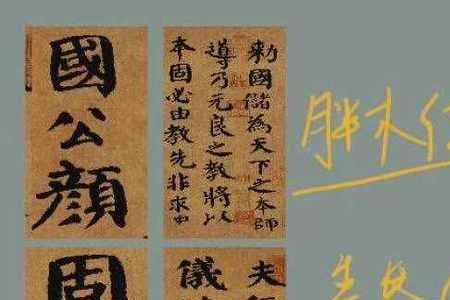 國公顏
勅國儲為天下之本師
導乃元良之教將以
本固必由教先非求中
胖木
固
夫
儀